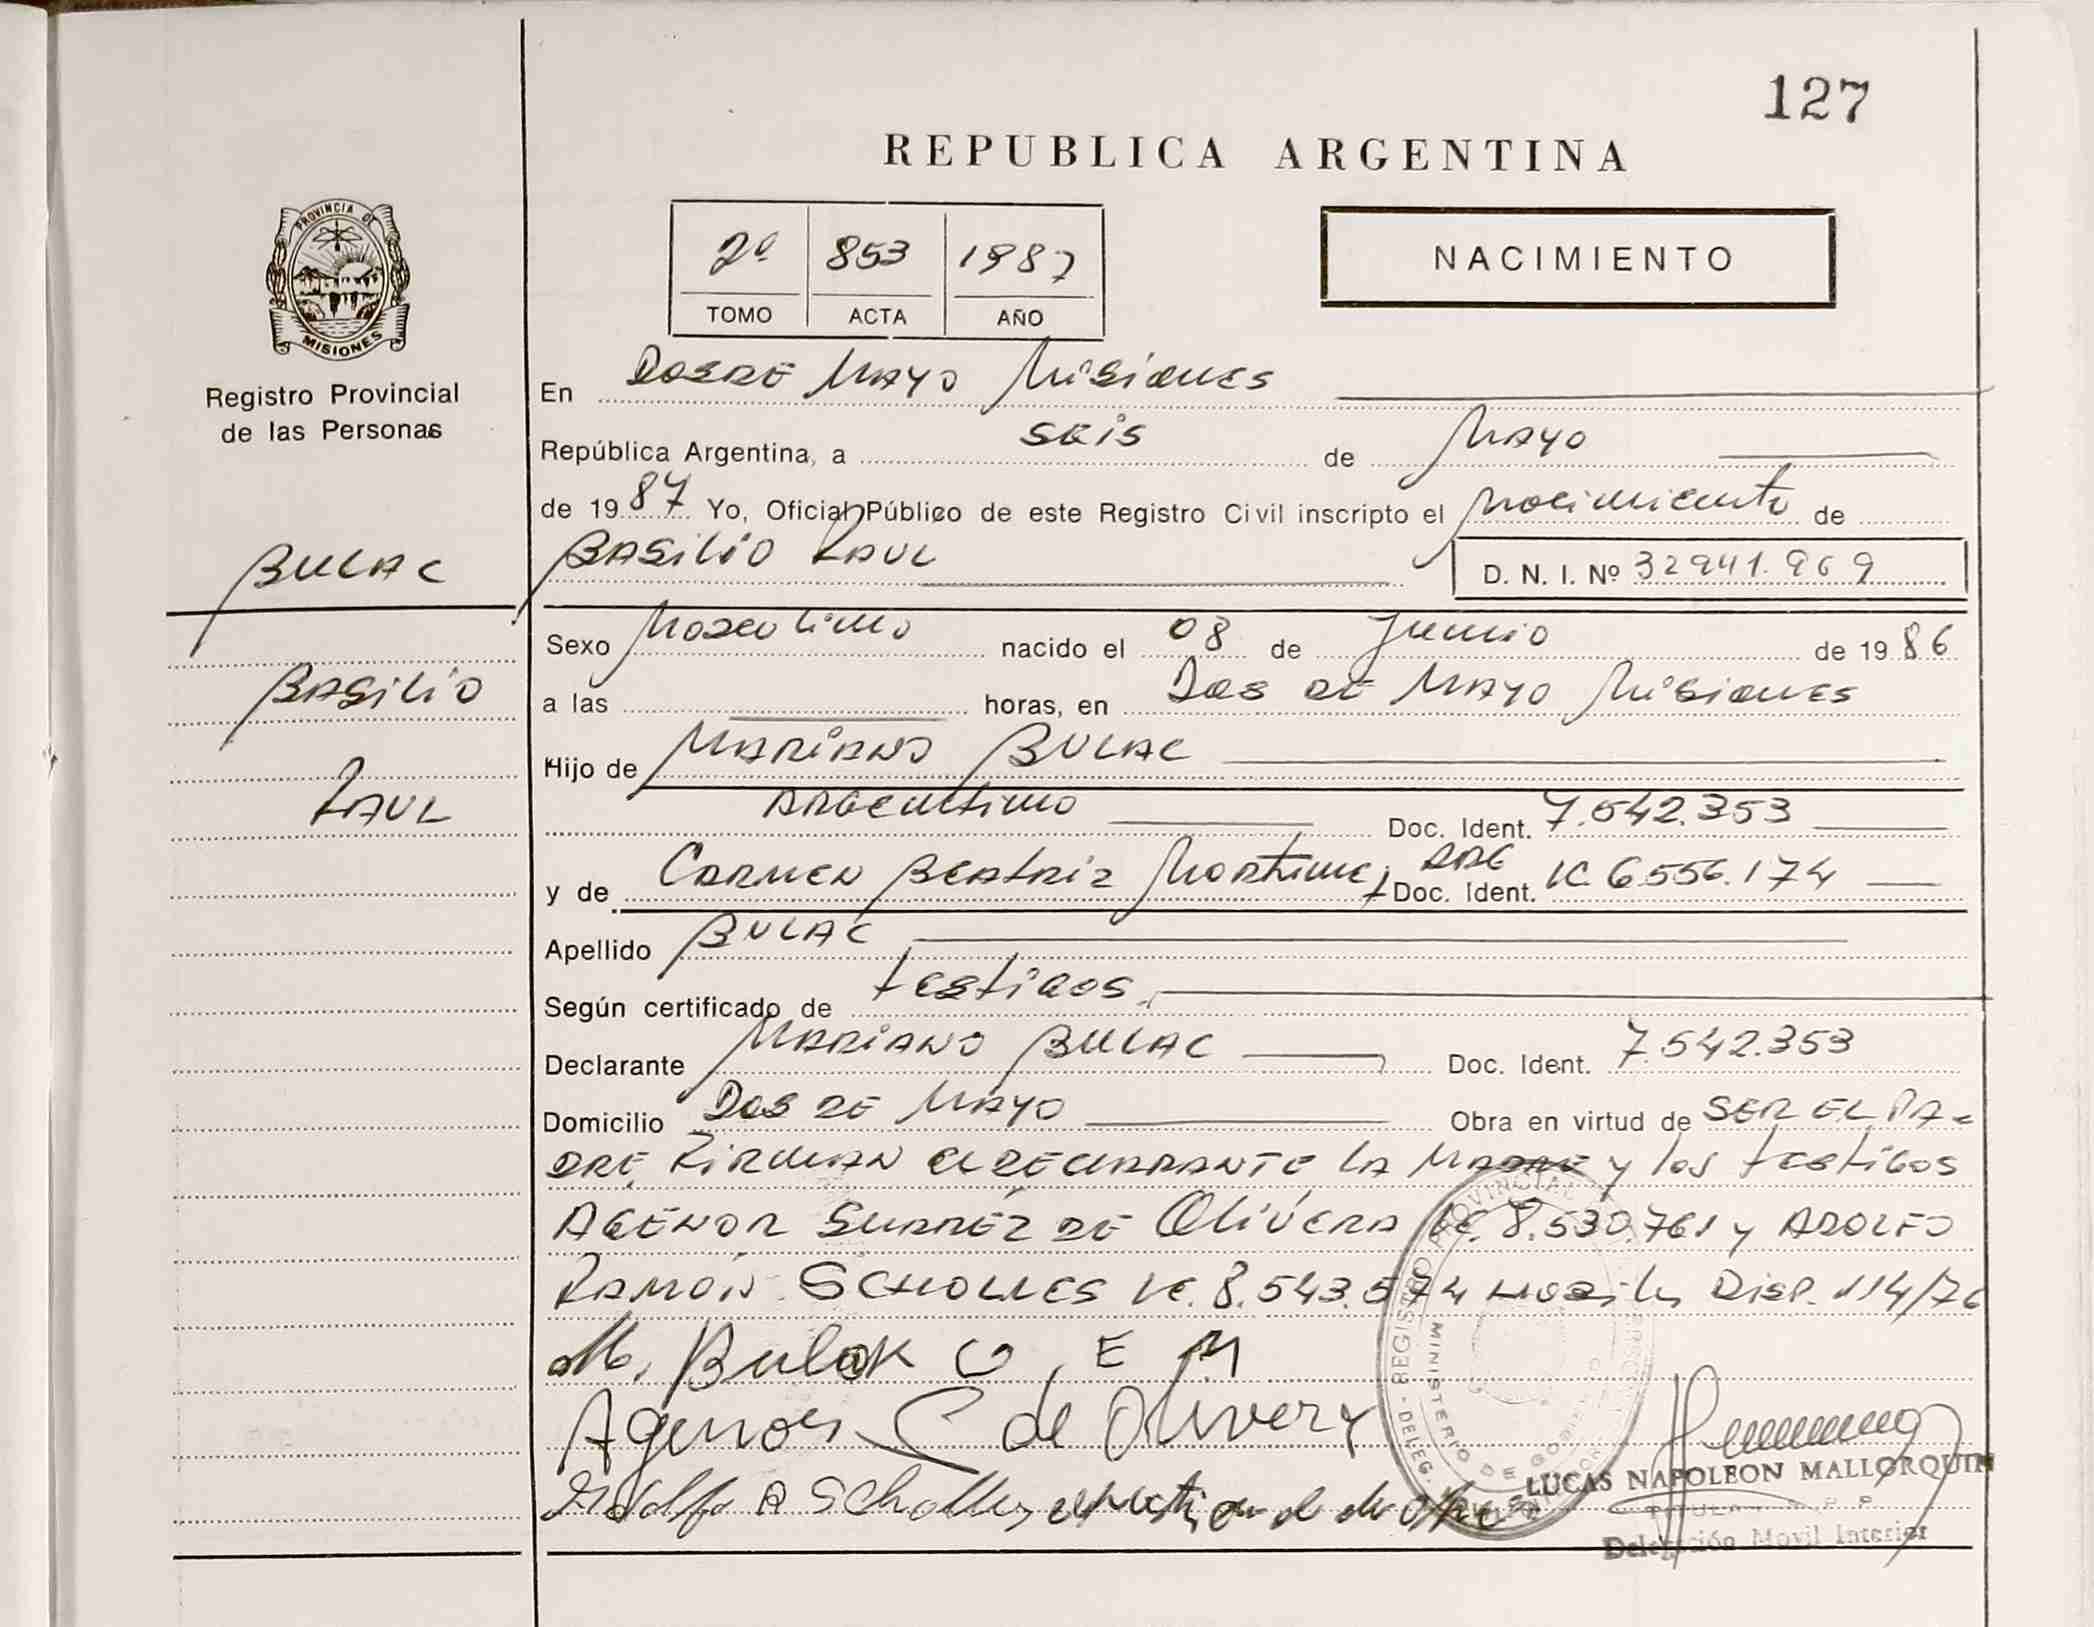 127
REPUBLICA ARGENTINA
2º 853 1987
TOMO ACTA AÑO
NACIMIENTO
PROVINCIA DE
MISIONES
Registro Provincial
de las Personas
BULAC
BASILIO
RAUL
En DOS DE MAYO Misiones
República Argentina, a SEIS de MAYO
de 1987 Yo, Oficial Público de este Registro Civil inscripto el nacimiento de
BASILIO RAUL D. N. I. Nº 32941.969
Sexo Masculino nacido el 08 de Junio de 1986
a las horas, en DOS DE MAYO Misiones
Hijo de MARIANO BULAC
ARGENTINO Doc. Ident. 7.542.353
y de CARMEN BEATRIZ Martinez ARG Doc. Ident. LC. 6.556.174
Apellido BULAC
Según certificado de testigos
Declarante MARIANO BULAC Doc. Ident. 7.542.353
Domicilio DOS DE MAYO Obra en virtud de SER EL PA-
DRE, FIRMAN el DECLARANTE LA MADRE y los testigos
AGENOR SUAREZ DE OLIVERA LE. 8.530.761 y ADOLFO
RAMÓN SCHOLLES LE. 8.543.574 Disp. 114/76
M. Bulak C, E M
Agenor S de Olivera
Adolfo R Scholles
REGISTRO PROVINCIAL
MINISTERIO DE GOBIERNO
DELEG.
LUCAS NAPOLEON MALLORQUIN
TITULAR R. P. P.
Delegación Movil Interior